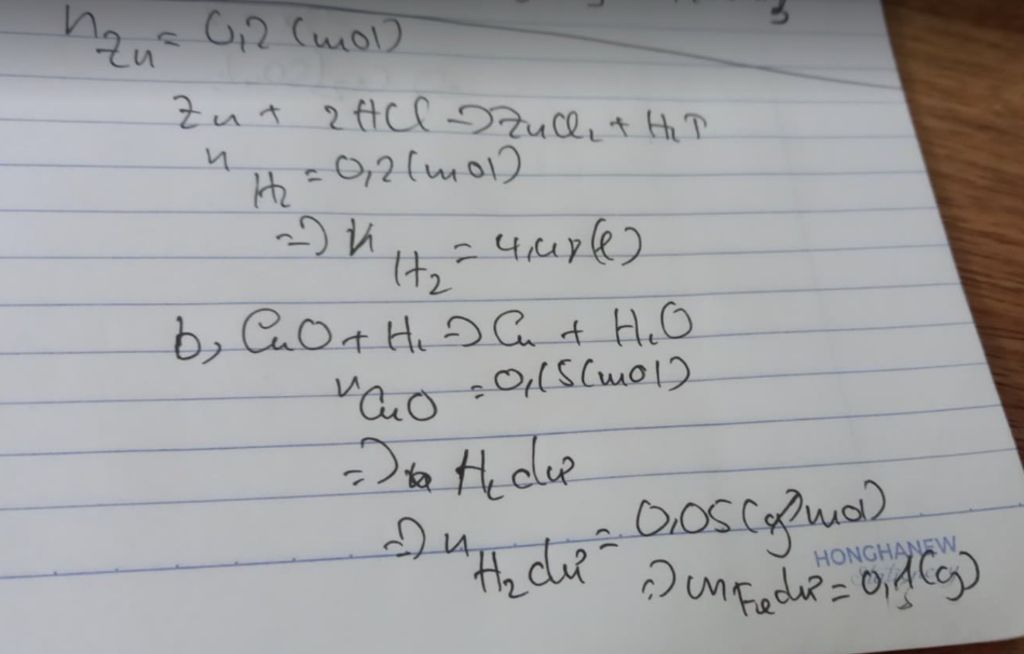 nZn = 0,2 (mol)
Zn + 2HCl => ZnCl2 + H2↑
nH2 = 0,2 (mol)
=> VH2 = 4,48 (l)
b, CuO + H2 => Cu + H2O
nCuO = 0,15 (mol)
=> H2 dư
=> nH2 dư = 0,05 (mol)
HONGHANEW
=> mFe dư = 0,1 (g)